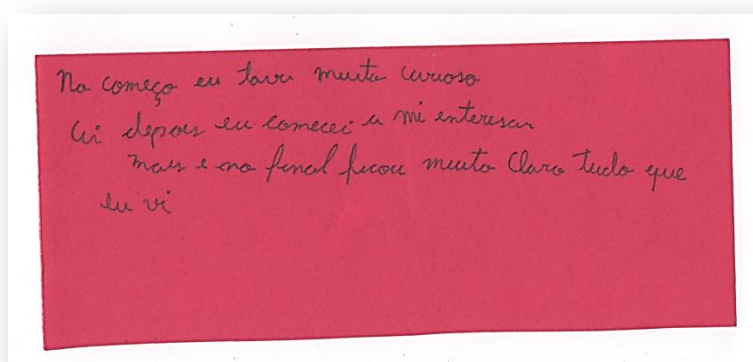 No começo eu tava muito curioso
ai depois eu comecei a mi enteresar
mais e no final ficou muito Claro tudo que
eu vi